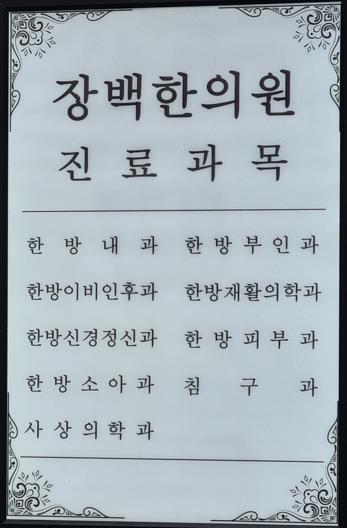 장백한의원
진료과목
한방내과 한방부인과
한방이비인후과 한방재활의학과
한방신경정신과 한방피부과
한방소아과 침구과
사상의학과